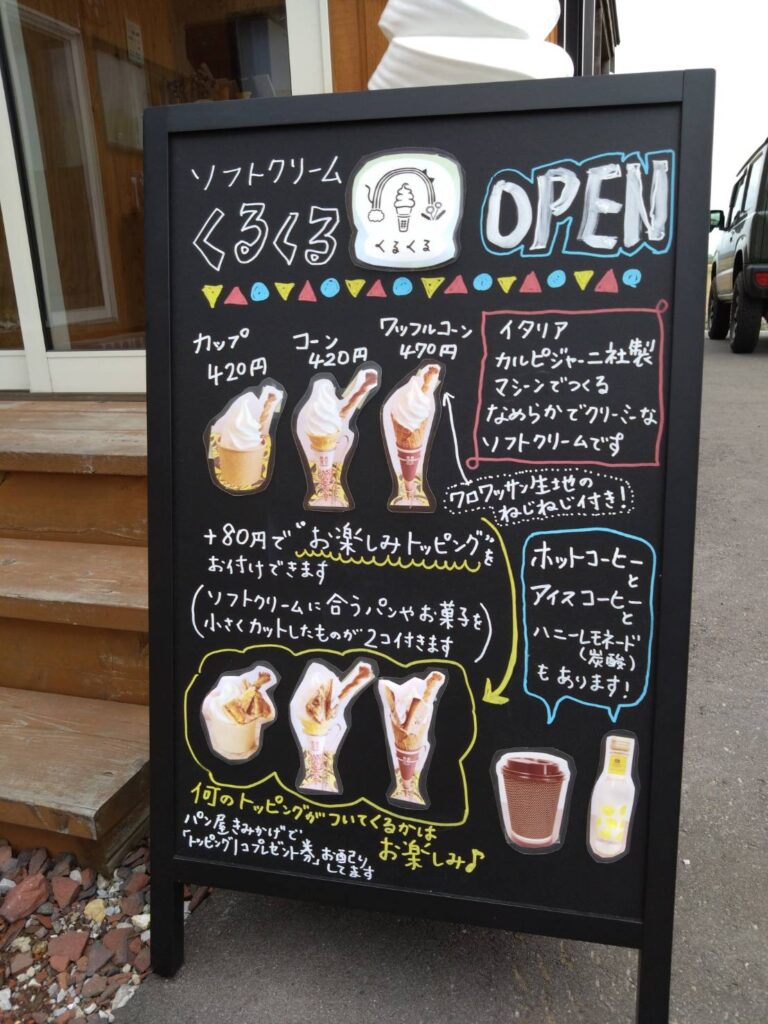 ソフトクリーム
くるくる
くるくる
OPEN
カップ
420円
コーン
420円
ワッフルコーン
470円
イタリア
カルピジャーニ社製
マシーンでつくる
なめらかでクリーミーな
ソフトクリームです
クロワッサン生地の
ねじねじ付き!
+80円で"お楽しみトッピング"を
お付けできます
(ソフトクリームに合うパンやお菓子を
小さくカットしたものが2コ付きます)
ホットコーヒー
と
アイスコーヒー
と
ハニーレモネード
(炭酸)
もあります!
何のトッピングがついてくるかは
お楽しみ♪
パン屋きみかげで、
「トッピング1コプレゼント券」お配り
してます